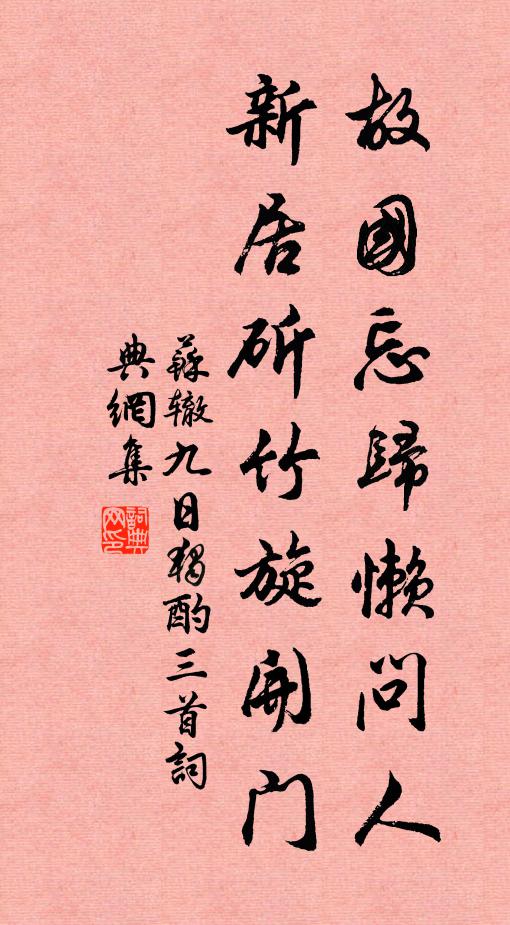 故國忘歸懶問人
新居斫竹旋開門
蘇轍九日獨酌三首詞
典網集
詞典网印